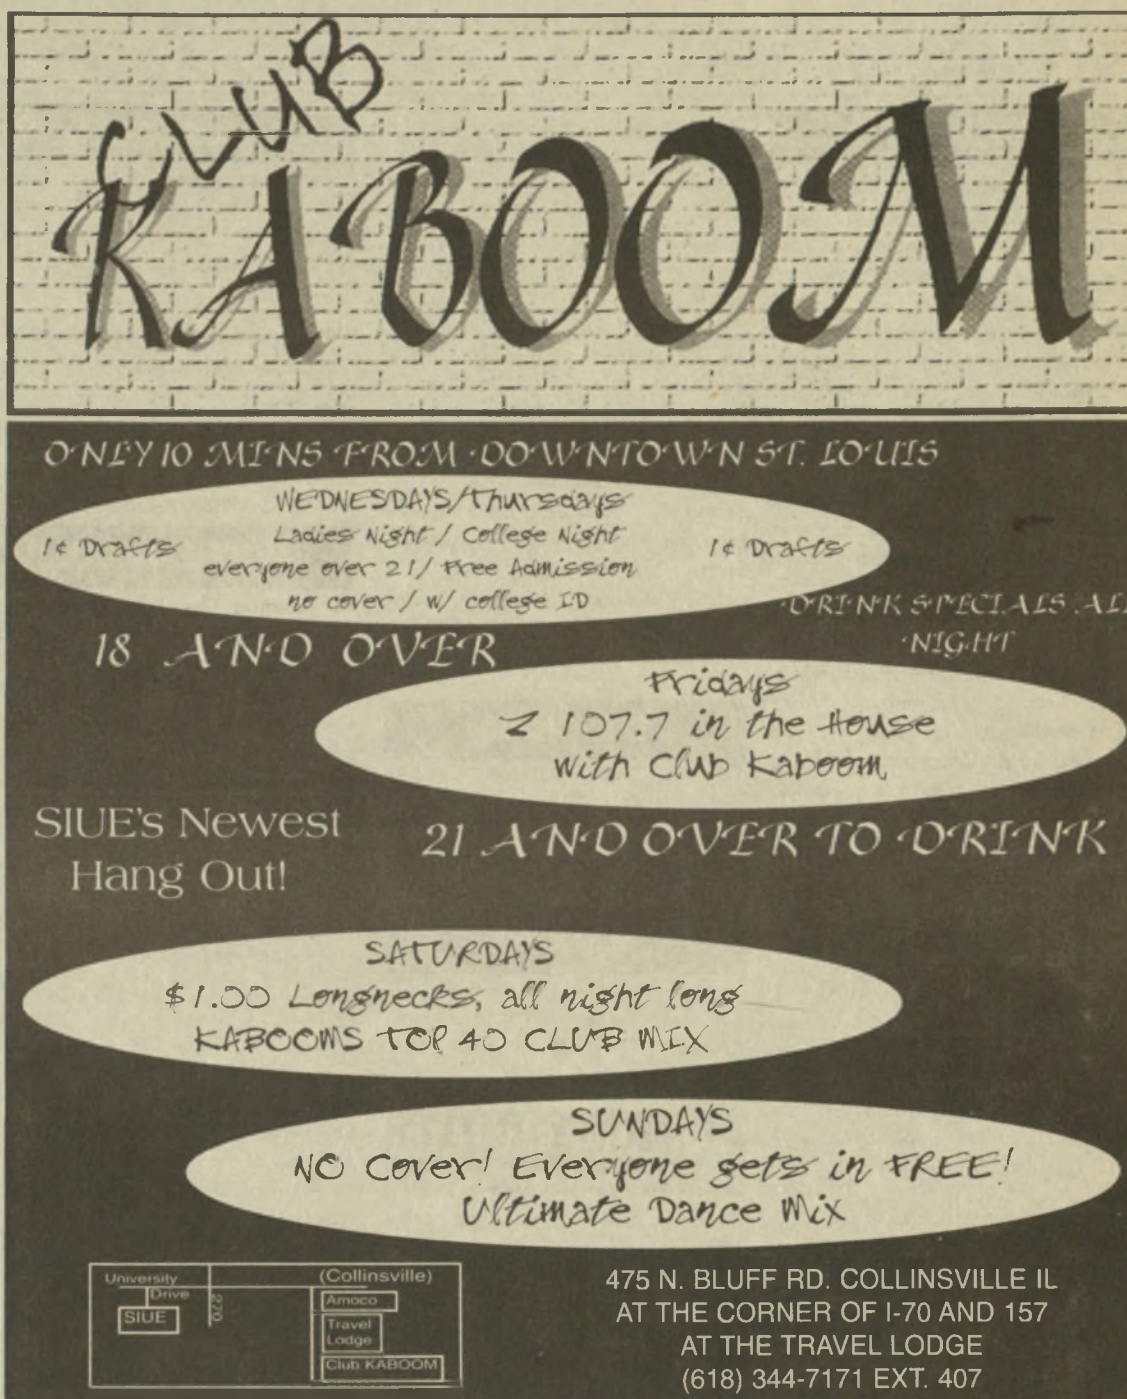 CLUB
KABOOM
ONLY 10 MINS FROM DOWNTOWN ST. LOUIS
WEDNESDAYS/Thursdays
Ladies Night / College Night
1¢ Drafts
1¢ Drafts
everyone over 21/ Free Admission
no cover / w/ college ID
DRINK SPECIALS ALL
NIGHT
18 AND OVER
Fridays
Z 107.7 in the House
with Club Kaboom
SIUE's Newest
Hang Out!
21 AND OVER TO DRINK
SATURDAYS
$1.00 Longnecks, all night long
KABOOMS TOP 40 CLUB MIX
SUNDAYS
NO Cover! Everyone gets in FREE!
Ultimate Dance Mix
University
Drive
SIUE
270
(Collinsville)
Amoco
Travel
Lodge
Club KABOOM
475 N. BLUFF RD. COLLINSVILLE IL
AT THE CORNER OF I-70 AND 157
AT THE TRAVEL LODGE
(618) 344-7171 EXT. 407